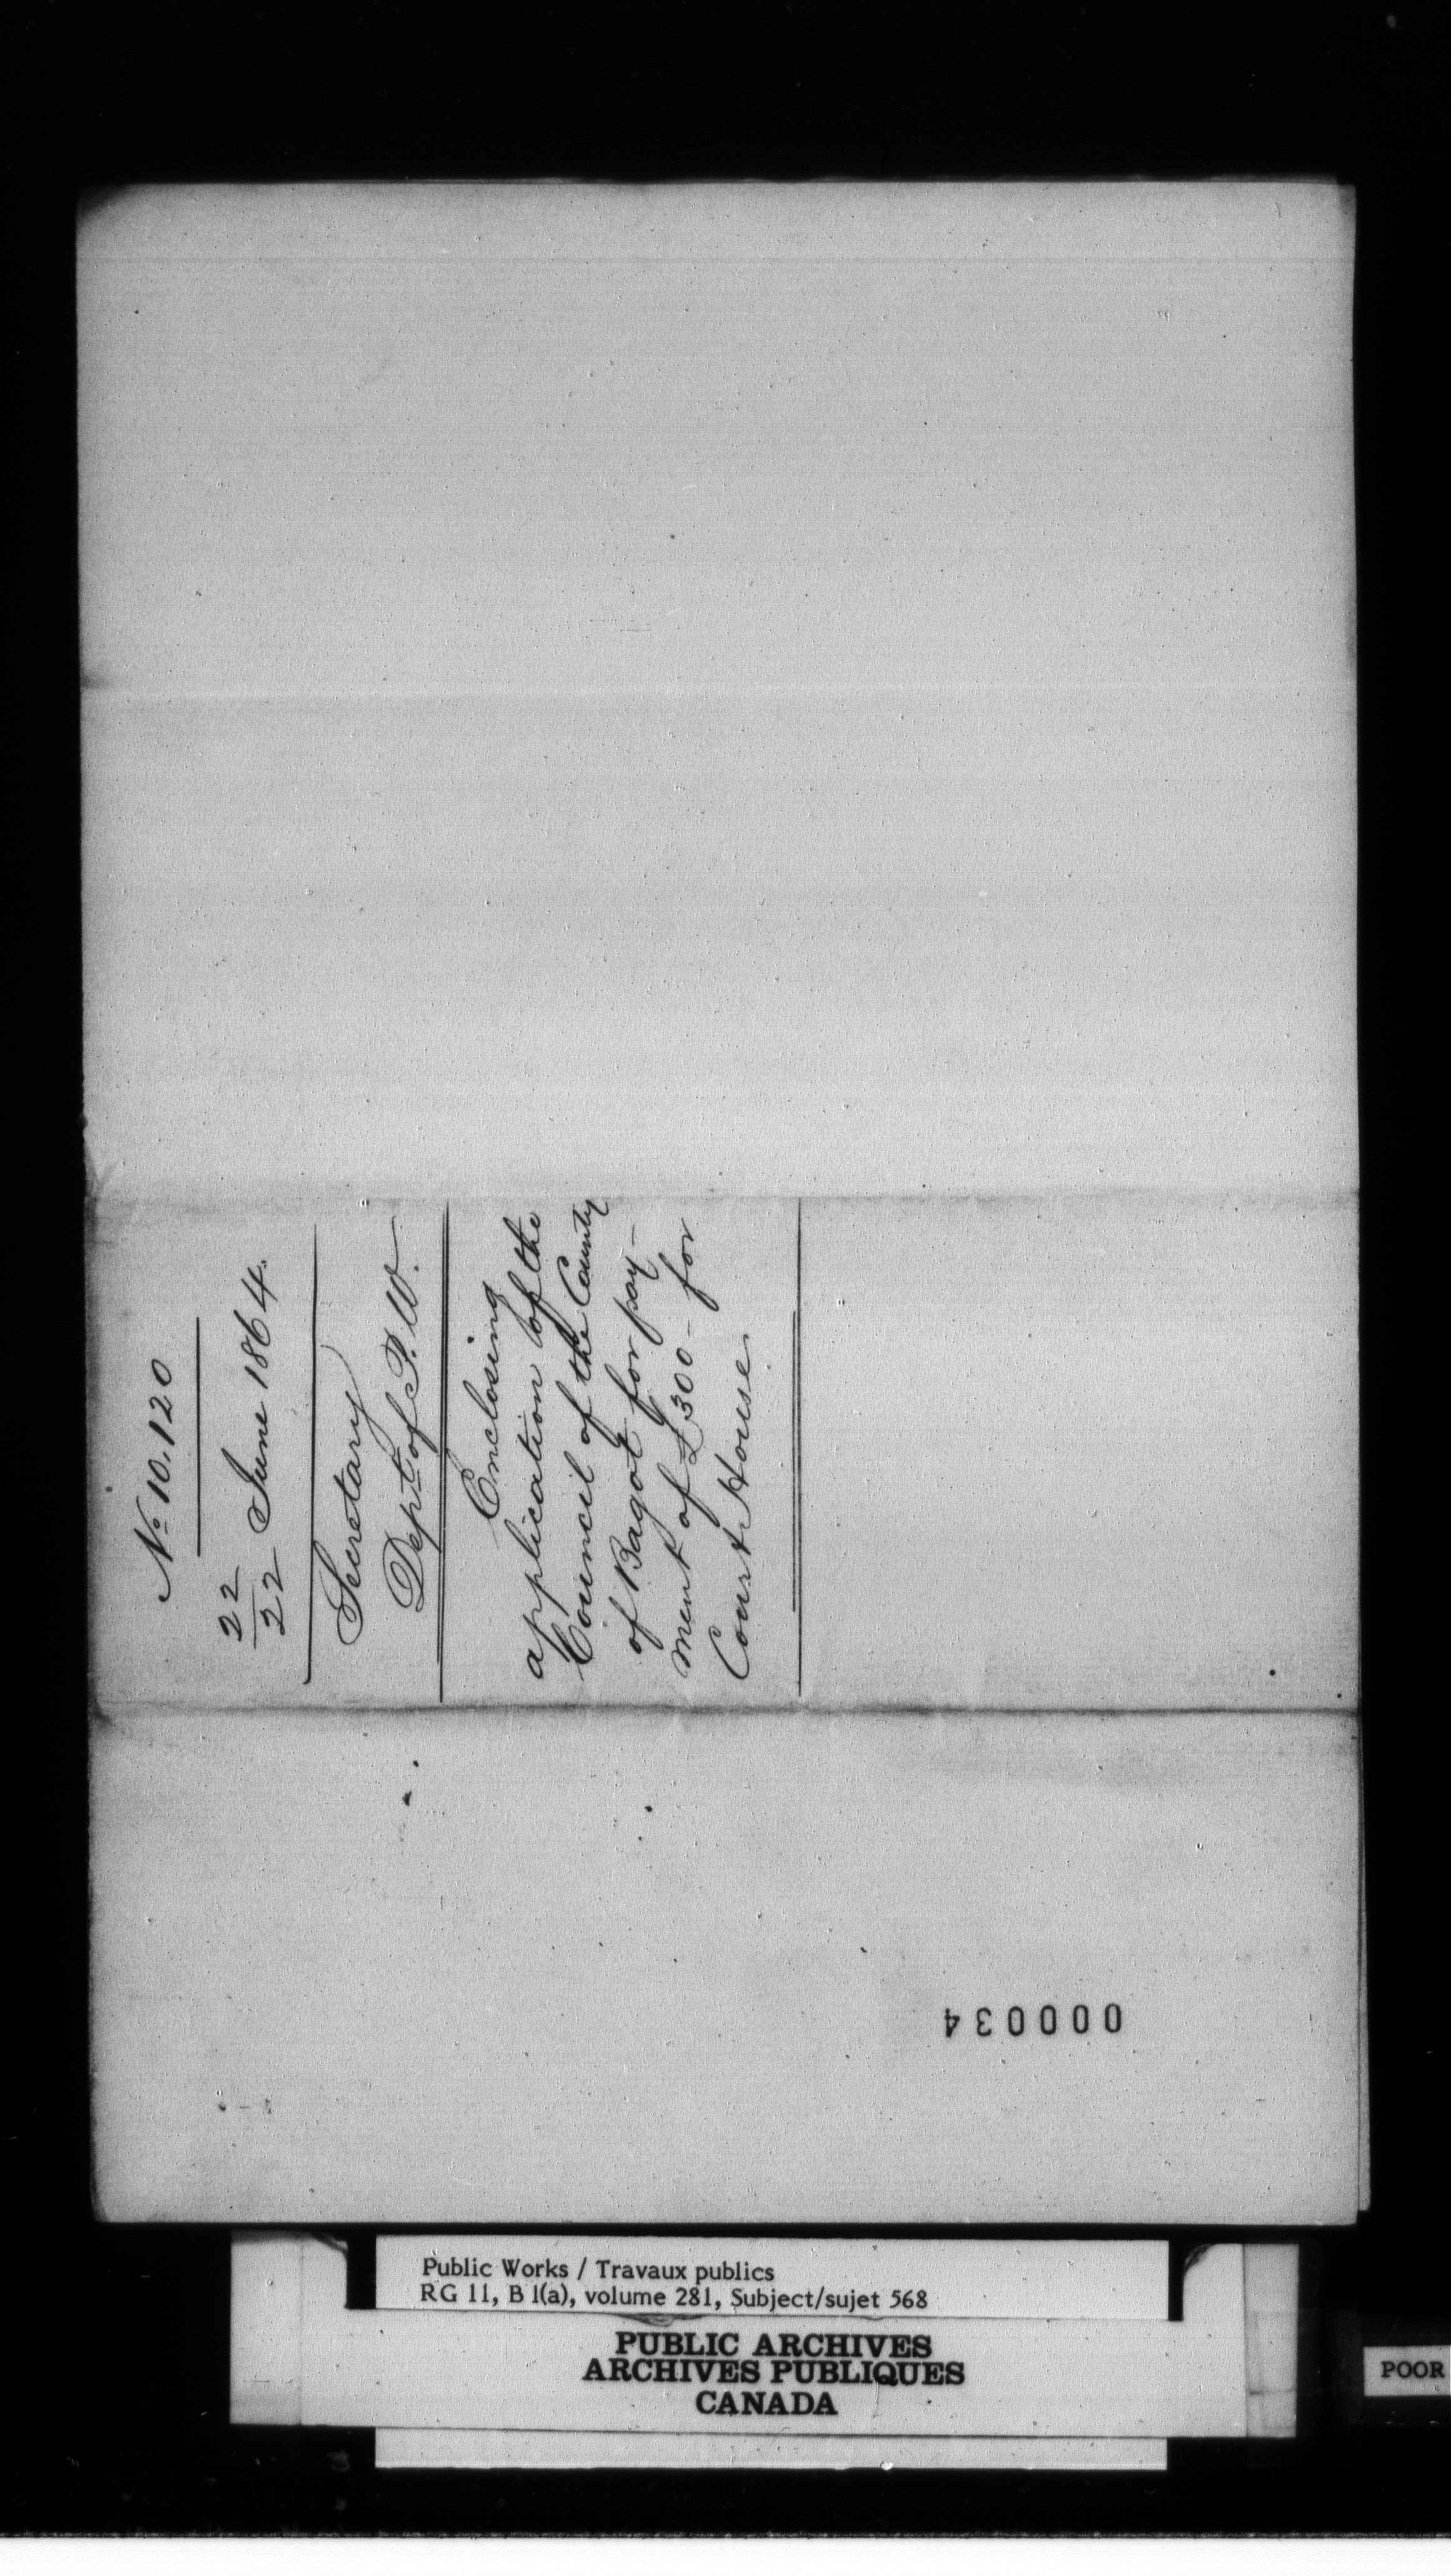 No. 10,120
22
22 June 1864.
Secretary
Dept of P. W.
Enclosing
application of the
Council of the County
of Bagot for pay-
ment of £300- for
Court House.
000034
Public Works / Travaux publics
RG 11, B 1(a), volume 281, Subject/sujet 568
PUBLIC ARCHIVES
ARCHIVES PUBLIQUES
CANADA
POOR